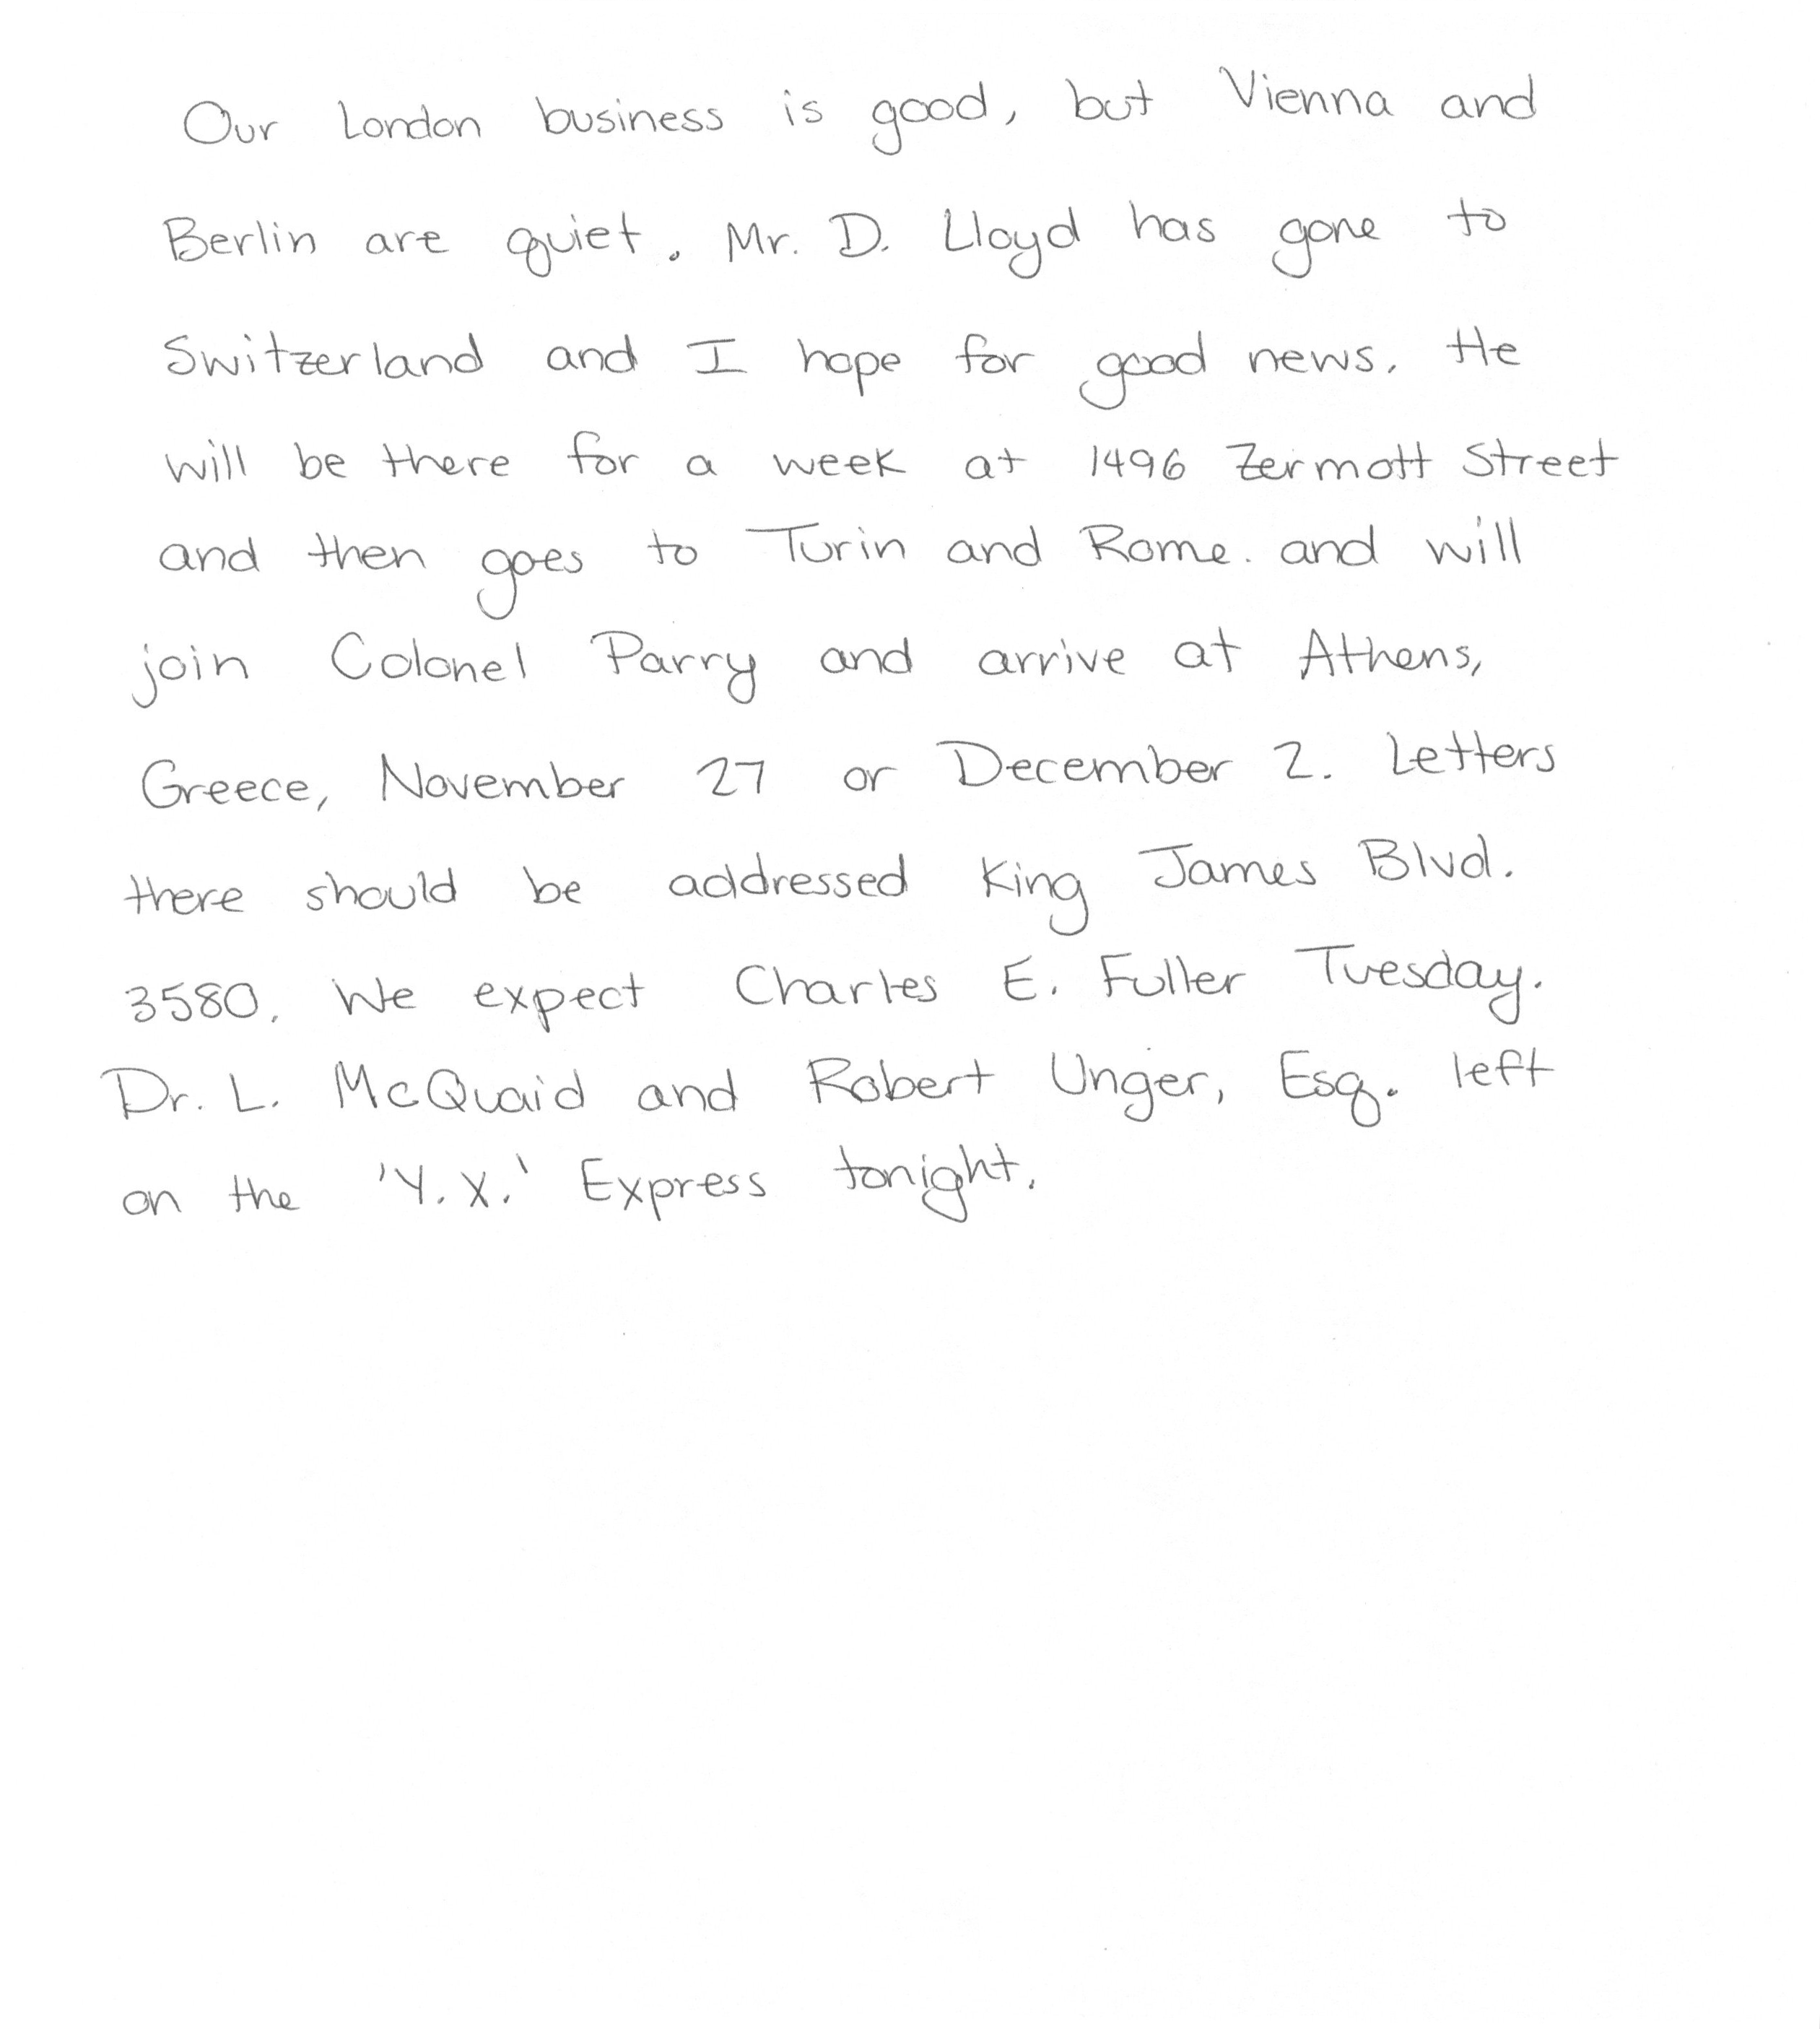 Our London business is good, but Vienna and
Berlin are quiet. Mr. D. Lloyd has gone to
Switzerland and I hope for good news. He
will be there for a week at 1496 Zermott Street
and then goes to Turin and Rome. and will
join Colonel Parry and arrive at Athens,
Greece, November 27 or December 2. Letters
there should be addressed King James Blvd.
3580. We expect Charles E. Fuller Tuesday.
Dr. L. McQuaid and Robert Unger, Esq. left
on the 'Y.X.' Express tonight.